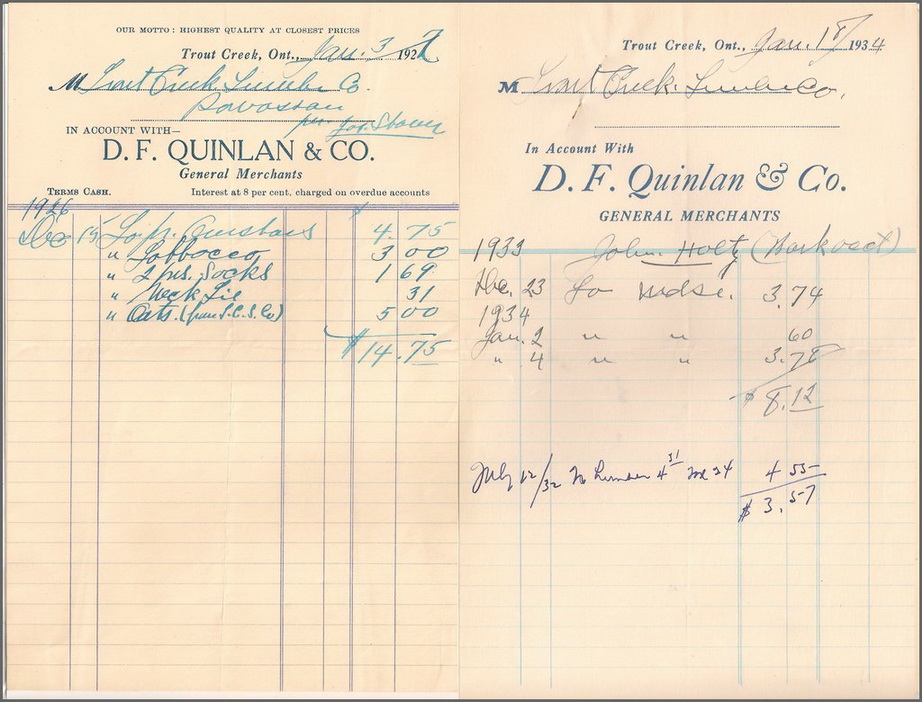 OUR MOTTO: HIGHEST QUALITY AT CLOSEST PRICES
Trout Creek, Ont., Jan. 3 1927
M Trout Creek Lumber Co.
Powassan
per Jos. Stover
IN ACCOUNT WITH—
D. F. QUINLAN & CO.
General Merchants
TERMS CASH. Interest at 8 per cent. charged on overdue accounts
1926 $
Dec 15 To pr. 4 75
" Tobbocco 3 00
" 2 prs. Socks 1 69
" Neck Tie 31
" Oats. (from T.C.S.Co) 5 00
$14.75
Trout Creek, Ont., Jan. 18/ 1934
M Trout Creek Lumber Co.
In Account With
D. F. Quinlan & Co.
GENERAL MERCHANTS
1933 John Holtz (Work acct)
Dec. 23 To mdse. 3.74
1934
Jan. 2 " " 60
" 4 " " 3.78
$8.12
July 12/32 Lumber 4 55
$3.57